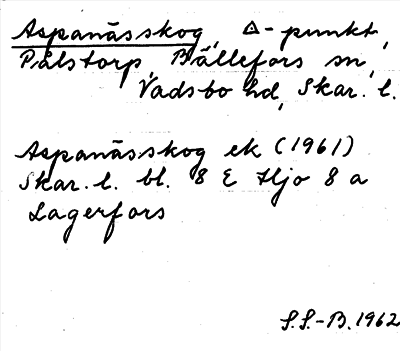 Aspanässkog, Δ-punkt,
Pålstorp, Bällefors sn,
Vadsbo hd, Skar. l.
Aspanässkog ek (1961)
Skar. l. bl. 8 E Hjo 8 a
Lagerfors
S.S.-B. 1962